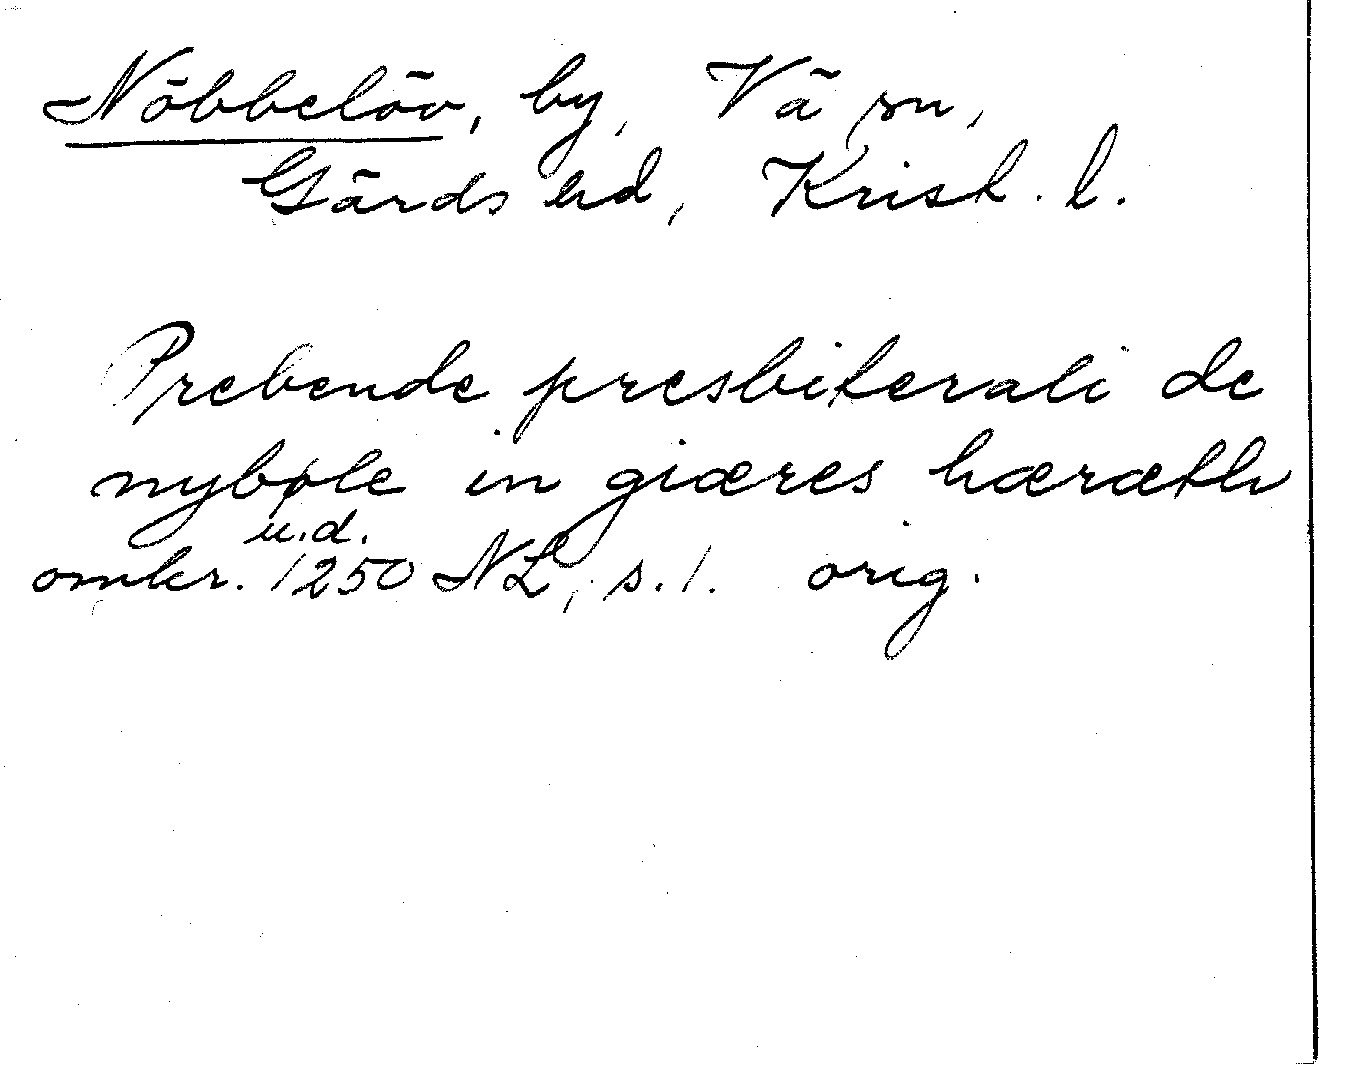 Nöbbelöv, by, Vä sn,
Gärds hd, Krist. l.
Prebende presbiterali de
nybøle in giæres hæræth
u.d.
omkr. 1250 NL, s. 1. orig.